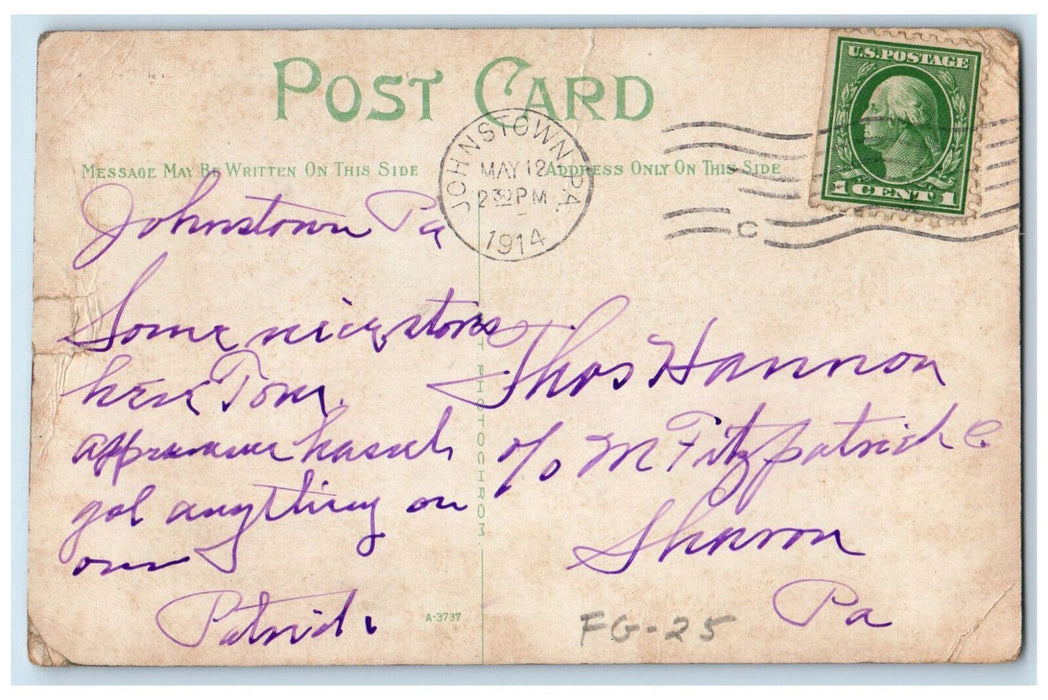 POST CARD
U.S. POSTAGE
1 CENT 1
JOHNSTOWN PA.
MAY 12
2 30 PM
1914
C
MESSAGE MAY BE WRITTEN ON THIS SIDE
ADDRESS ONLY ON THIS SIDE
Johnstown Pa
Some nice stores
here Tom.
appearance
got anything on
our
Patrick
Thos Hannon
c/o M Fitzpatrick C
Sharon
Pa
PHOTOCHROM
A-3737
FG-25